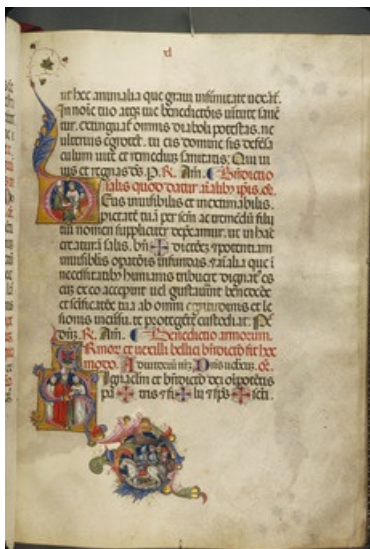 xl
ut hec animalia que graui infirmitate uexãt.
In noĩe tuo atq; tue benedictõis uirtute sanẽ
tur. extinguat̃ omnis diaboli potestas. ne
ulterius egrotẽt. tu eis domine sis defẽsa
culum uite et remediũ sanitatis. Qui ui
uis et regnas d̃s. P. R. Am̃. Bñdictio
salis quod datur aĩalibꝫ
Eus inuisibilis et inextimabilis.
pietatẽ tuã per scm̃ ac tremẽdũ filij
tui nomen suppliciter dep̃camur. ut in hãc
creaturã salis. bñ✠dictõẽs potentiam
inuisibilis opatõis infundas.
necessitatibꝫ humanis tribuere dignat̃
eus ex eo acceperint uel gustauerint
et scificatẽ tua ab omni
sionis incursu. te protegẽte custodiat. P̃
dñꝫ. R. Am̃. Benedictio armorum.
Rmor et uexilli bellici bñdictõ fit hec
modo. Adiutoriũ nr̃ꝫ. Dñs uobiscũ.
ignaclm̃ et bñdictõ dei oĩpotẽtis
pa✠tris ⁊ fi✠lij ⁊ sp̃s✠scti.